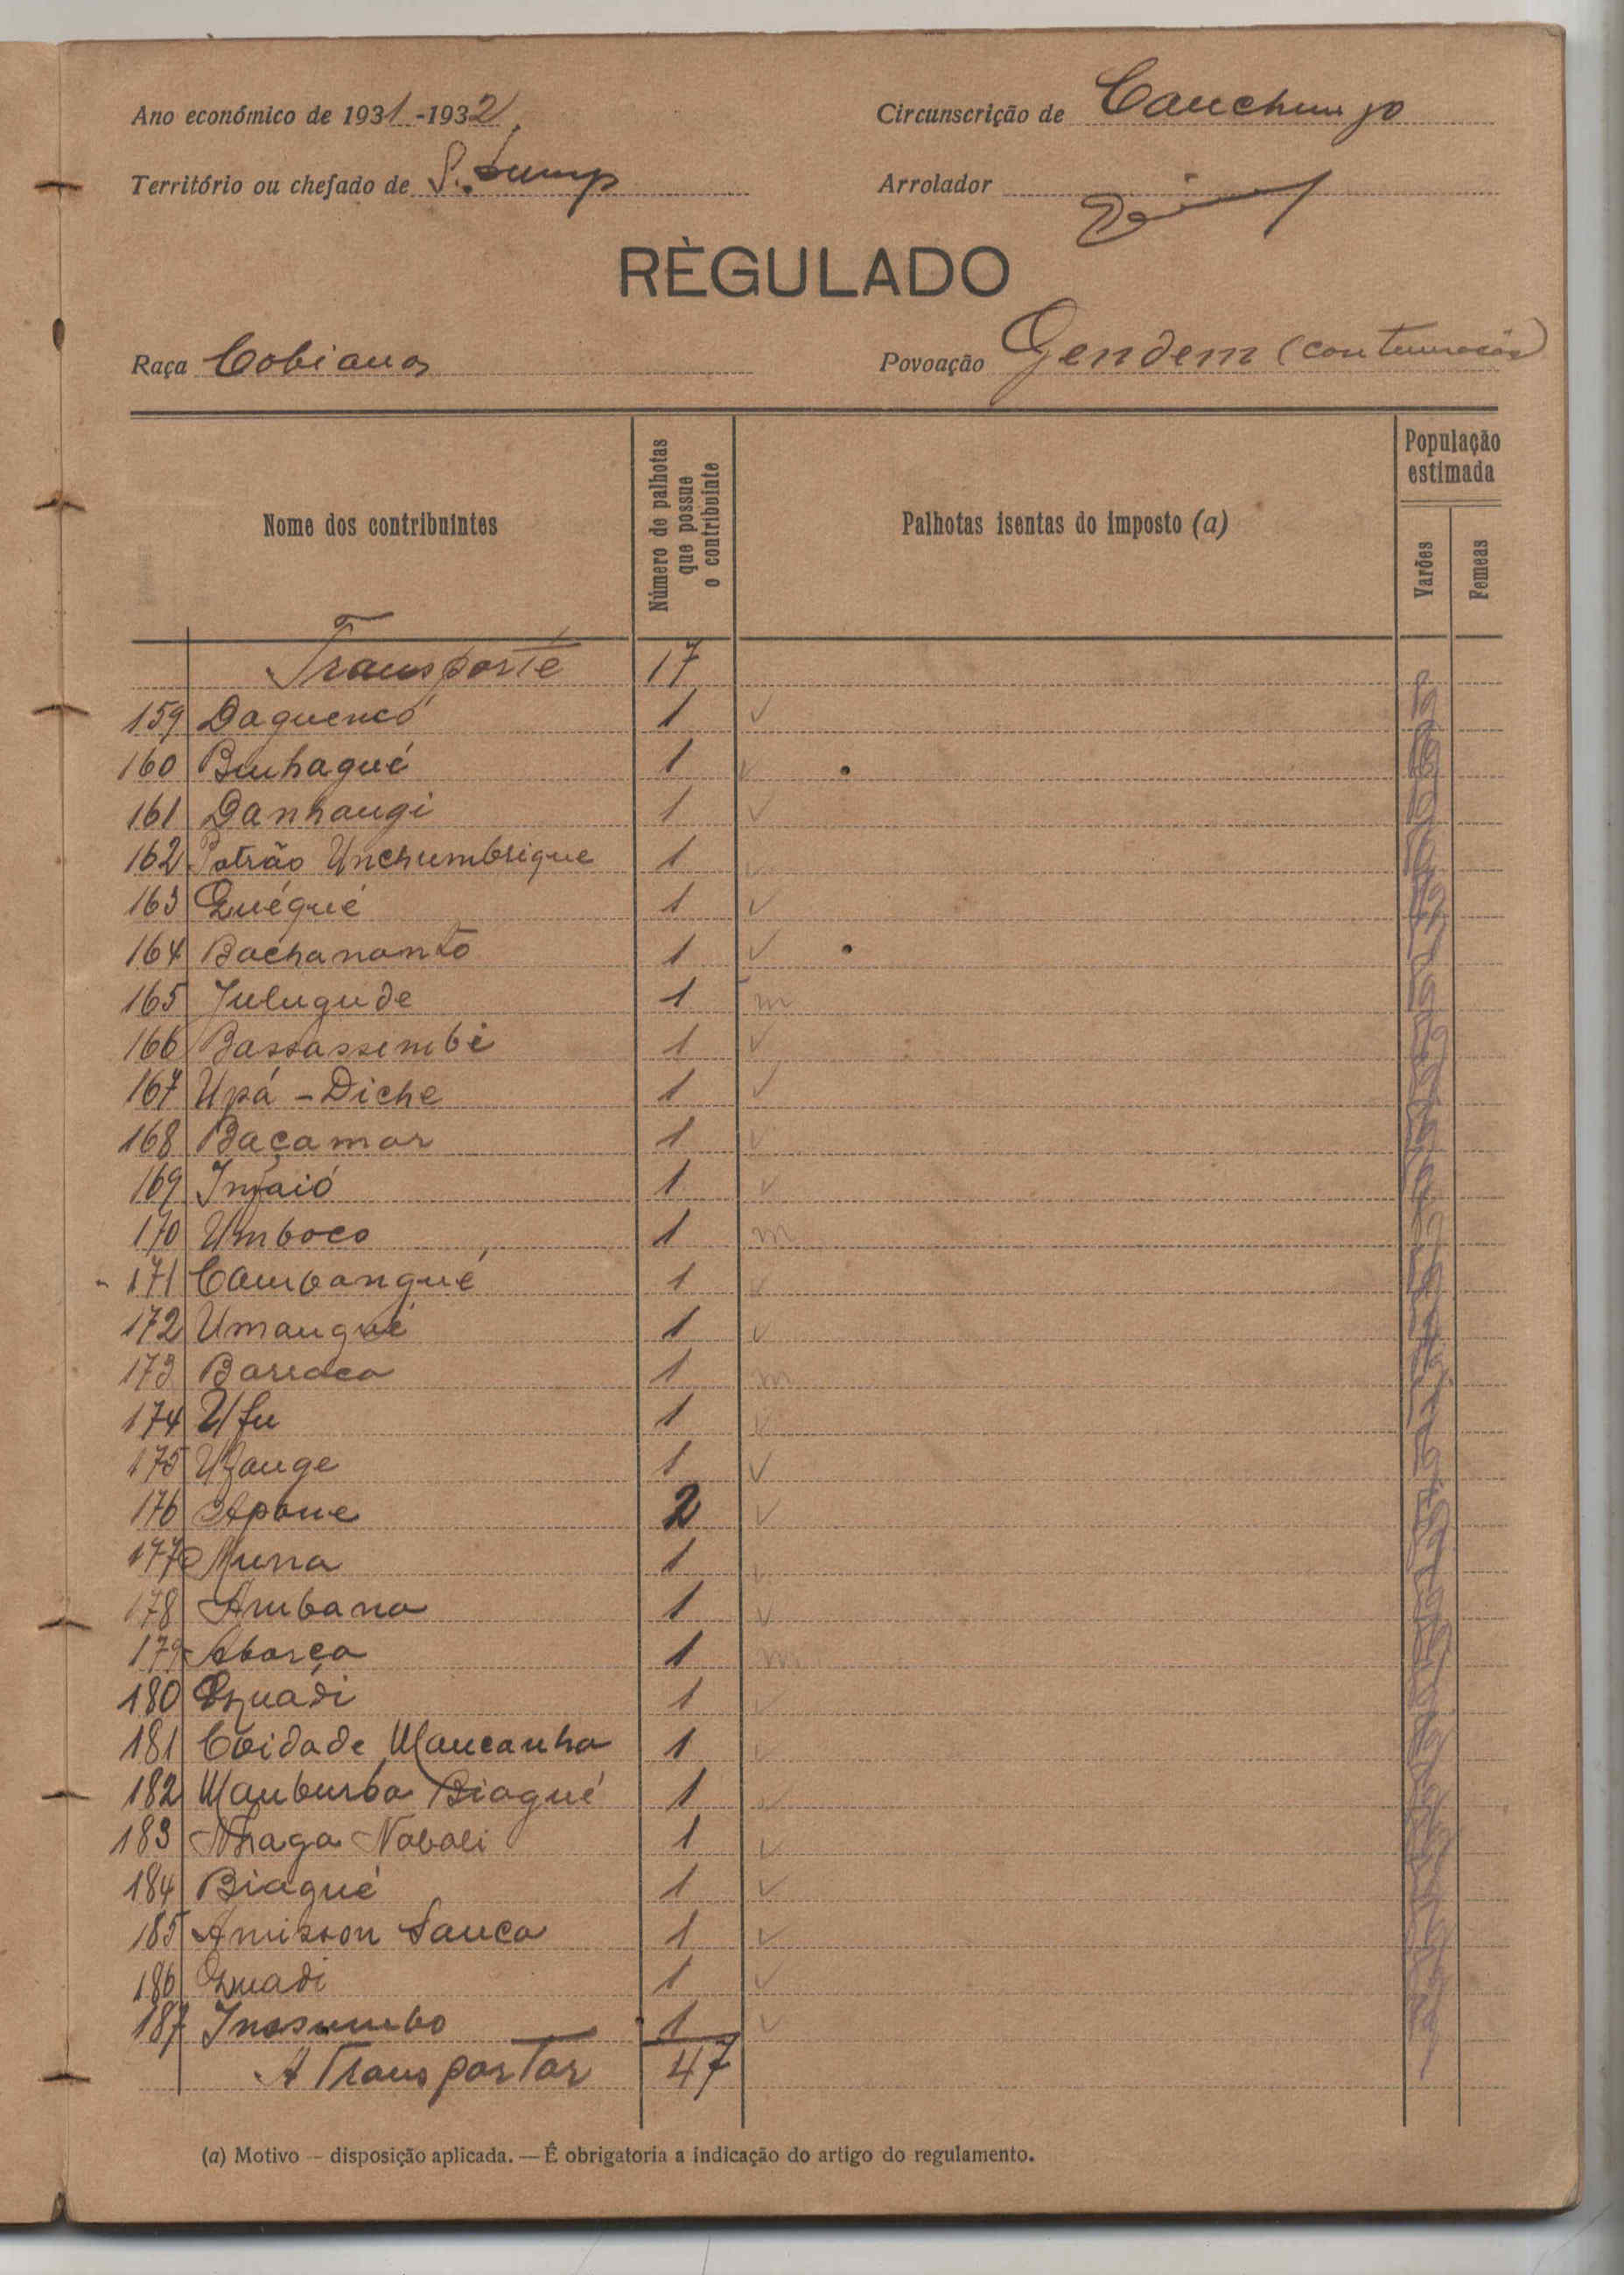 Ano económico de 1931-1932
Circunscrição de Canchungo
Território ou chefado de
Arrolador
RÈGULADO
Raça Cobianos
Povoação Gendem (continuação)
Nome dos contribuintes
Número de palhotas que possue o contribuinte
Palhotas isentas do imposto (a)
População estimada
Varões
Femeas
Transporte 17
159 Daguencó 1
160 Binhagué 1
161 Danhangi 1
162 Patrão Unchumbrique 1
163 Quéqué 1
164 Bachananto 1
165 Julugude 1 m
166 Bassassimbi 1
167 Upá - Diche 1
168 Baçamar 1
169 Injaió 1
170 Umboco 1 m
171 Cambangué 1
172 Umangué 1
173 Barraca 1 m
174 Ufu 1
175 Ufange 1
176 Apane 2
177 Nunna 1
178 Ambana 1
179 Abarça 1 m
180 1
181 Coidade Mancanha 1
182 Manburba Biagué 1
183 Nhaga Nabali 1
184 Biagué 1
185 Amisson Sanca 1
186 1
187 Inssumbo 1
A Transportar 47
(a) Motivo — disposição aplicada. — É obrigatoria a indicação do artigo do regulamento.